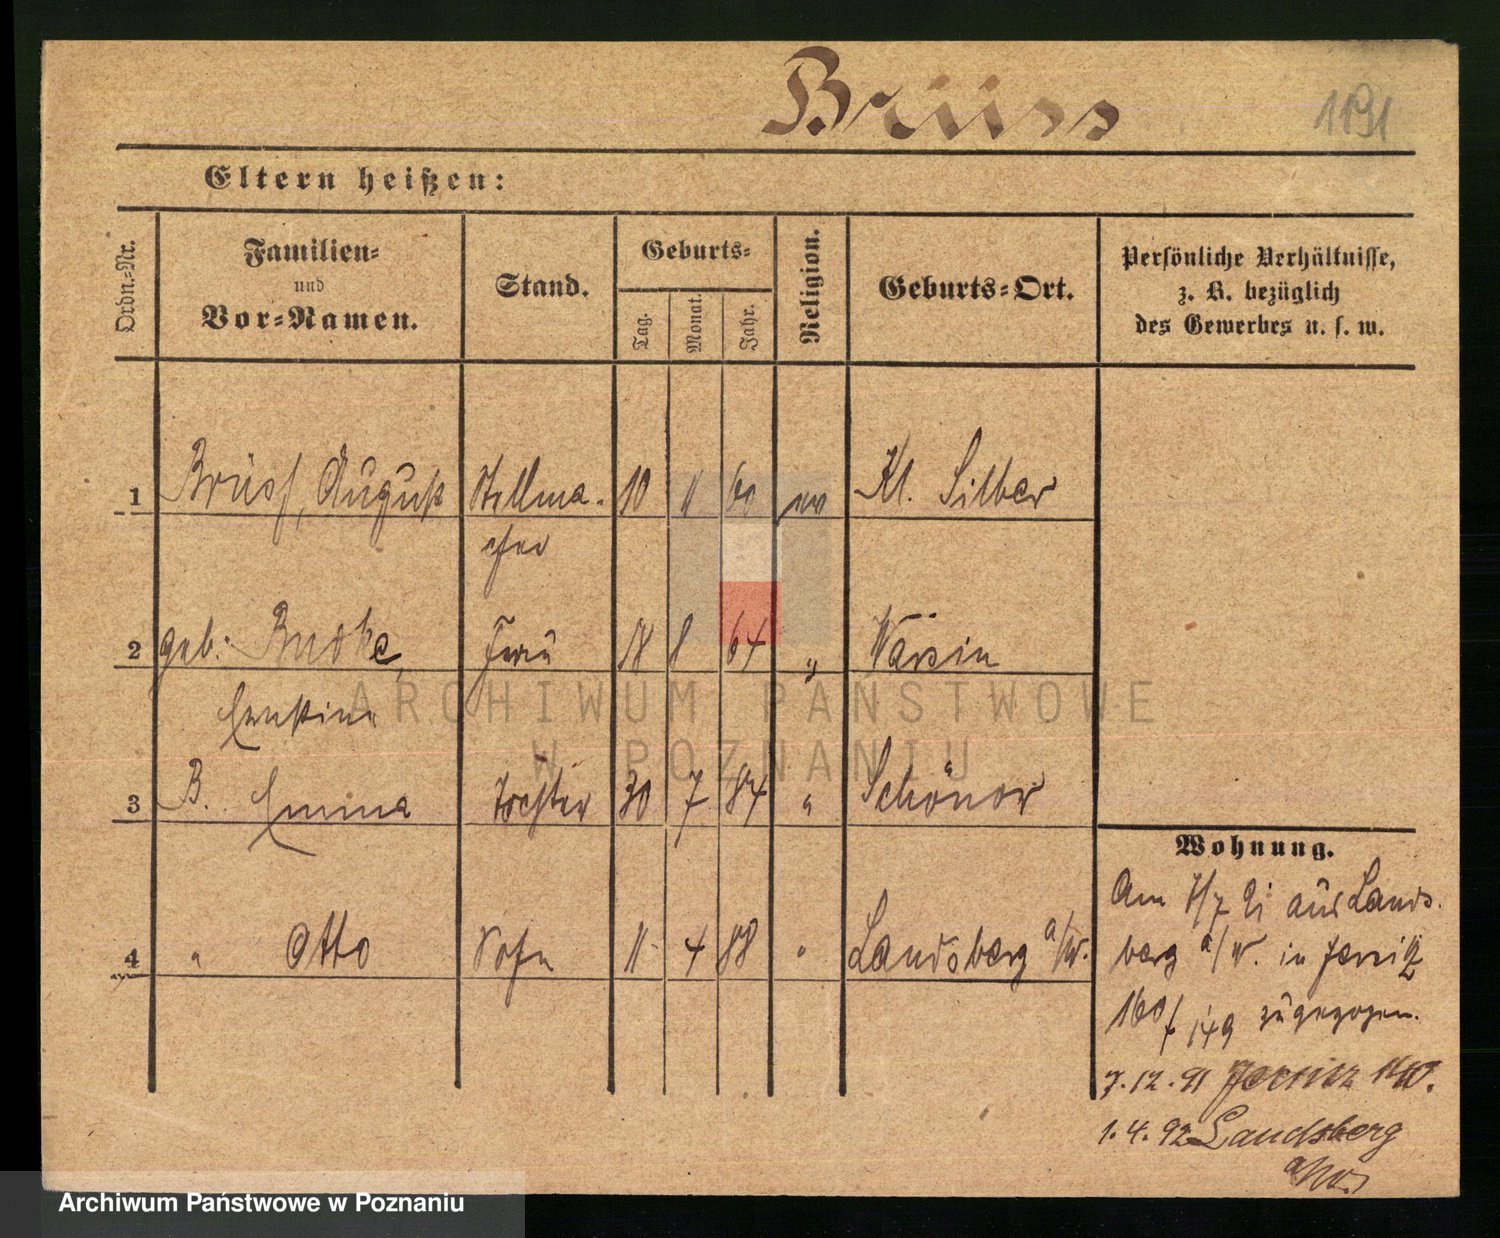 Brüss
1191
Eltern heißen:
Ordn.-Nr.
Familien-
und
Vor-Namen.
Stand.
Geburts-
Tag.
Monat.
Jahr.
Religion.
Geburts-Ort.
Persönliche Verhältnisse,
z. B. bezüglich
des Gewerbes u. s. w.
1 Brüss, August Stellma- 10 11 60 ev Kl. Silber
cher
2 geb. Budke, Frau 18 8 64 "
Ernstine
3 B. Emma Tochter 30 7 84 " Schönow
4 " Otto Sohn 11 4 88 " Landsberg a/W.
Wohnung.
Am 7/7 91 aus Lands-
berg a/W. in Jersitz
160/149 zugezogen.
7.12.91 Jersitz
1.4.92 Landsberg
a/W.
ARCHIWUM PAŃSTWOWE
W POZNANIU
Archiwum Państwowe w Poznaniu